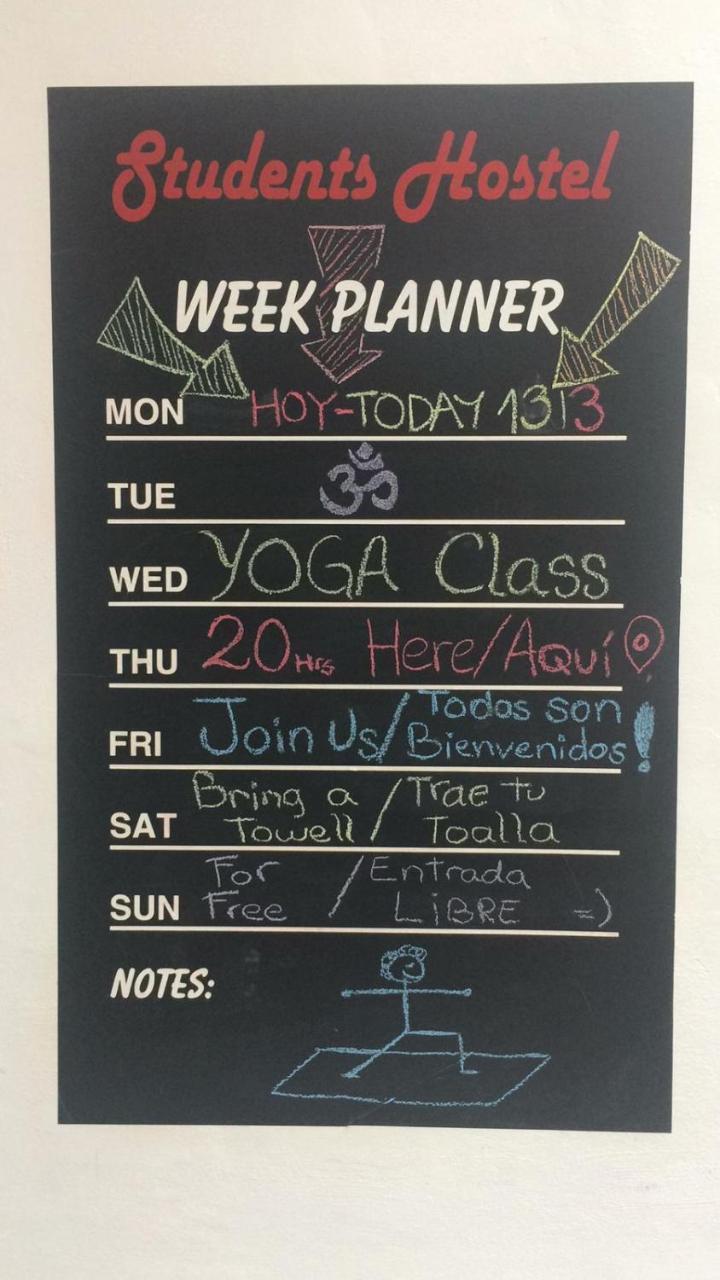 Students Hostel
WEEK PLANNER
MON HOY-TODAY 13|3
TUE ॐ
WED YOGA Class
THU 20Hrs Here/Aquí
FRI Join Us/Todos son Bienvenidos!
SAT Bring a Towell/Trae tu Toalla
SUN For Free/Entrada LiBRE =)
NOTES: